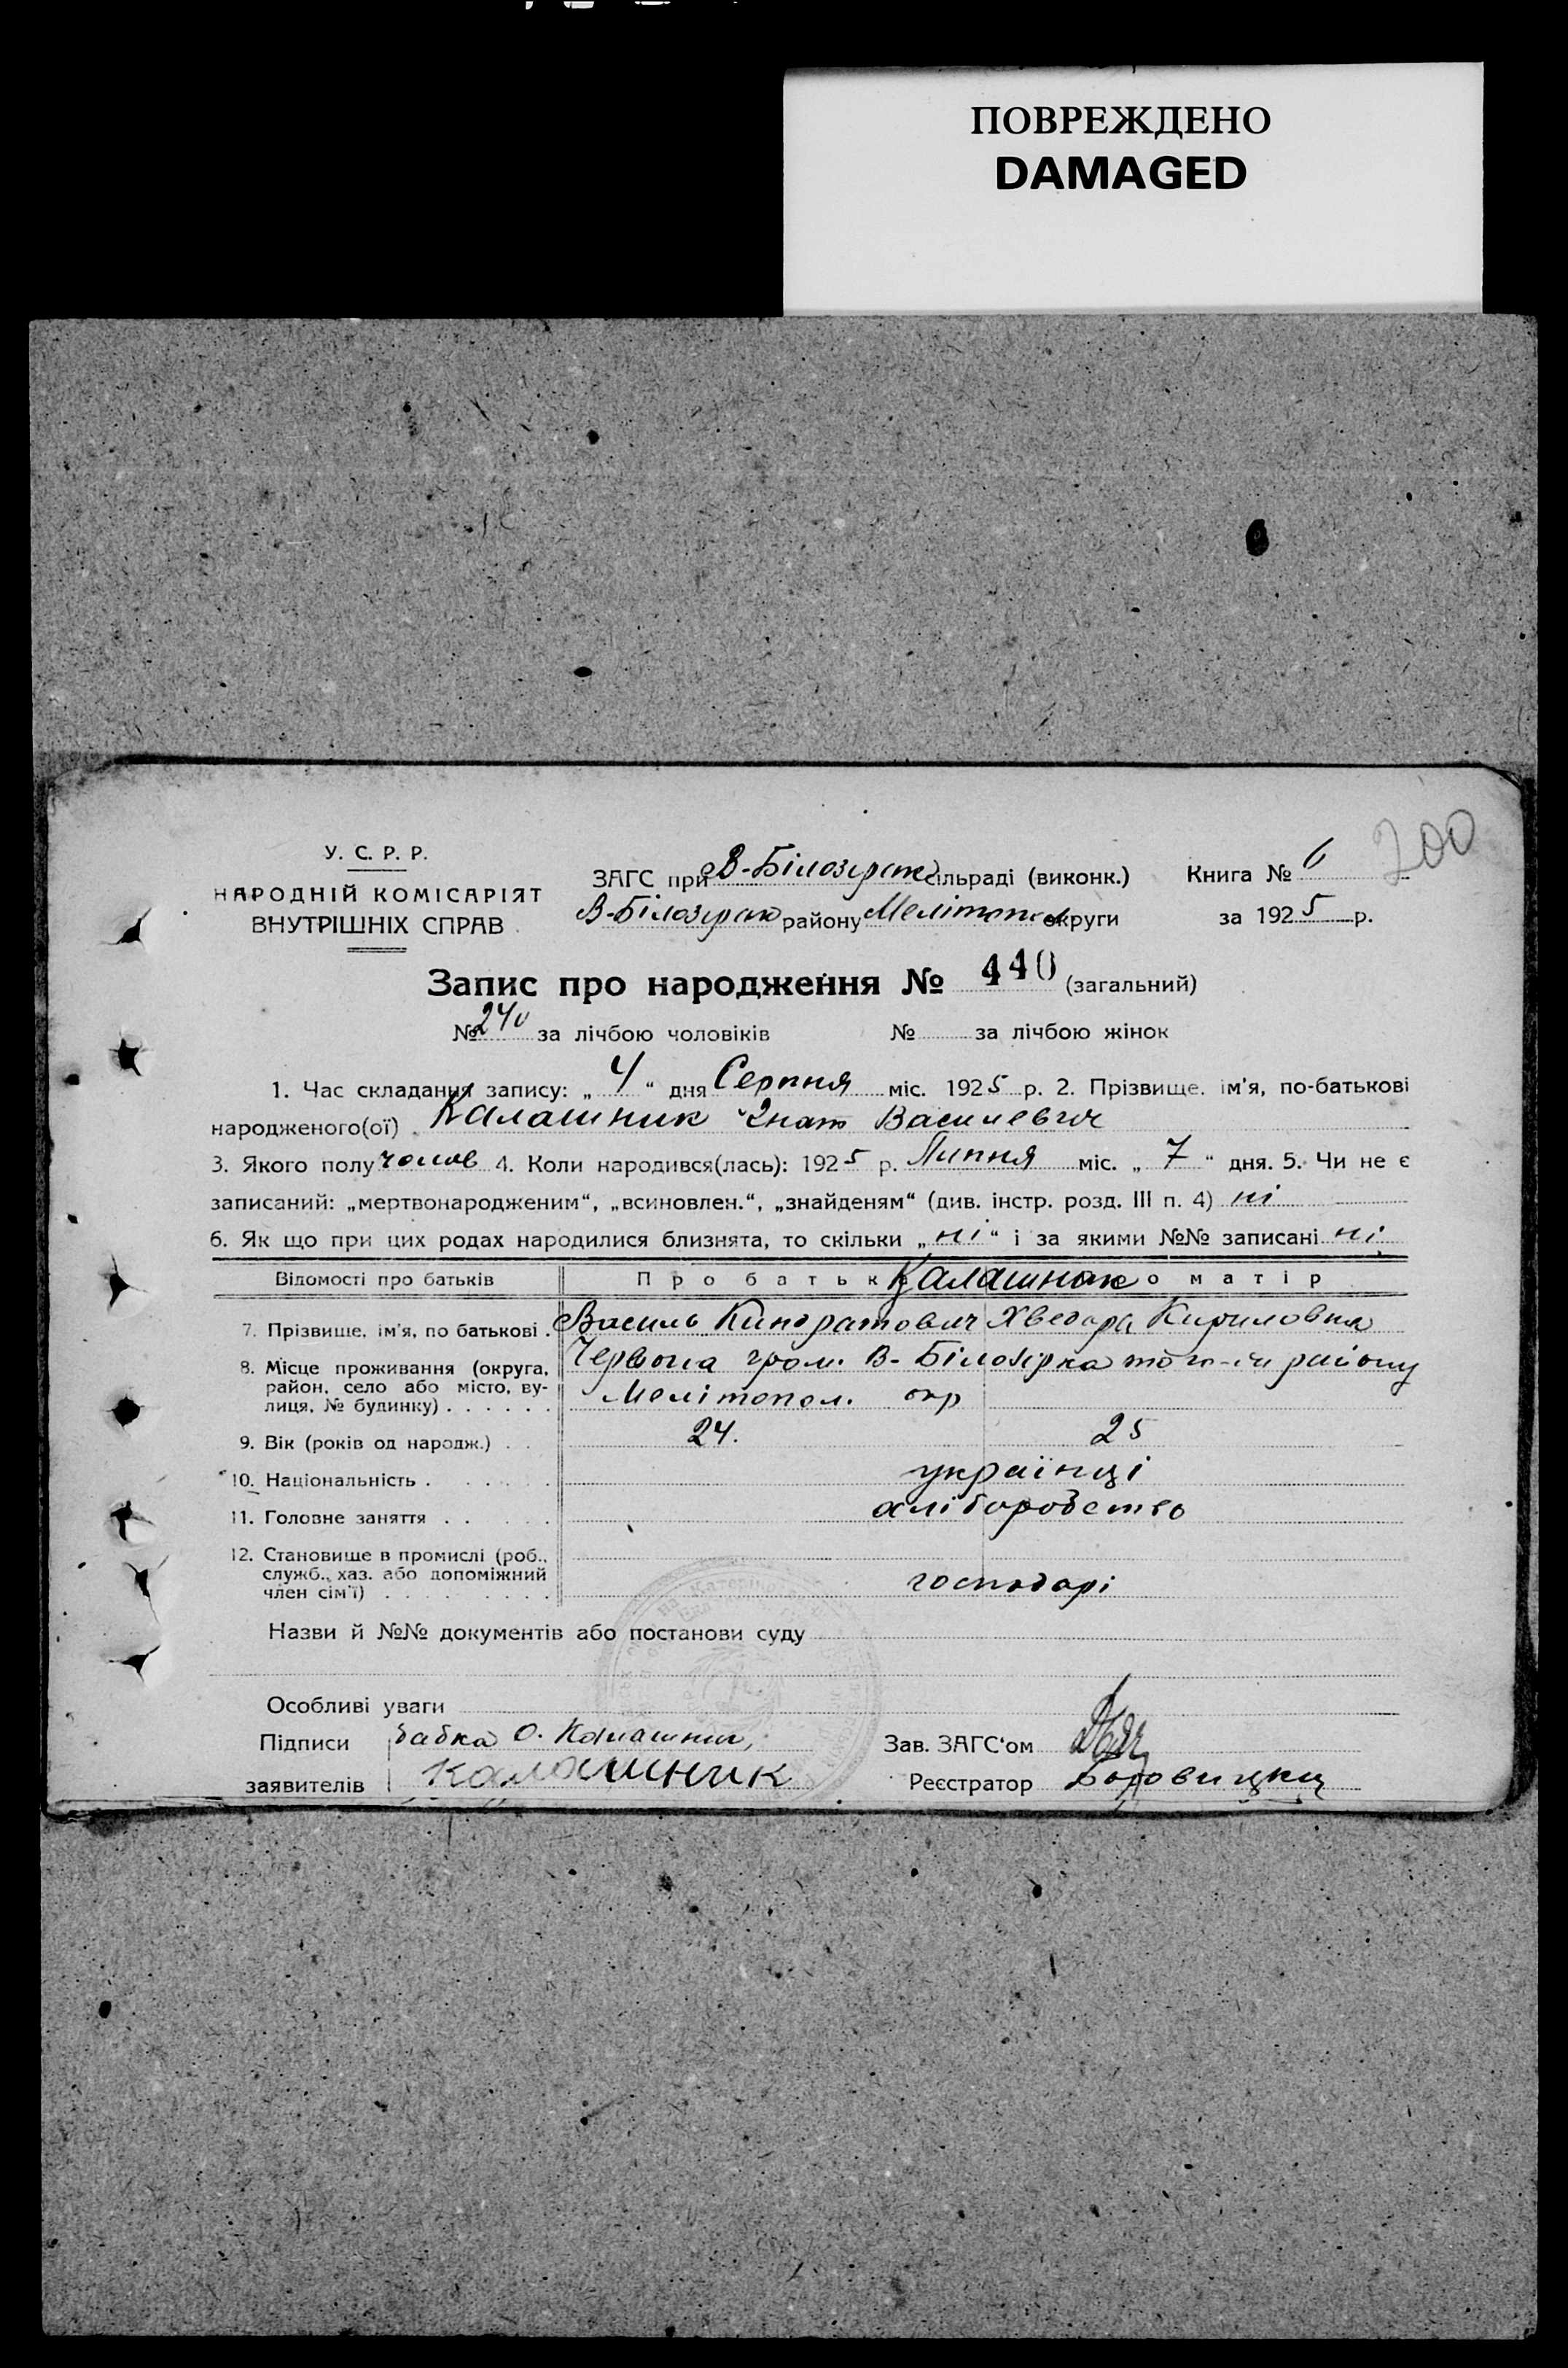 ПОВРЕЖДЕНО
DAMAGED
200
У. С. Р. Р.
НАРОДНІЙ КОМІСАРІЯТ
ВНУТРІШНІХ СПРАВ
ЗАГС при В-Білозірск сільраді (виконк.) Книга № 6
В-Білозірск району Мелітопол округи за 1925 р.
Запис про народження № 440 (загальний)
№ 240 за лічбою чоловіків № за лічбою жінок
1. Час складання запису: „4“ дня Серпня міс. 1925 р. 2. Прізвище, ім'я, по-батькові
народженого(ої) Калашник Гнат Васильевич
3. Якого полу чолов 4. Коли народився(лась): 1925 р. Липня міс. „7“ дня. 5. Чи не є
записаний: „мертвонародженим“, „всиновлен.“, „знайденям“ (див. інстр. розд. III п. 4) ні
6. Як що при цих родах народилися близнята, то скільки „ні“ і за якими №№ записані ні
Відомості про батьків Про батьк Калашник о матір
7. Прізвище, ім'я, по батькові Василь Киндратович Хведора Кириловна
8. Місце проживання (округа, район, село або місто, вулиця, № будинку) Червона гром. В-Білозірка того-ж району
Мелітопол. окр
9. Вік (років од народж.) 24. 25
10. Національність українці
11. Головне заняття хліборобство
12. Становище в промислі (роб., служб., хаз. або допоміжний член сім'ї) господарі
Назви й №№ документів або постанови суду
Особливі уваги
Підписи бабка О. Калашник, Зав. ЗАГС'ом
заявителів Калашник Реєстратор